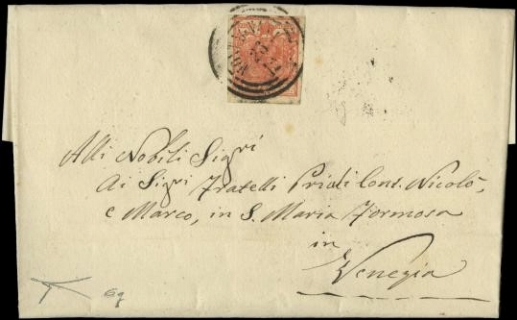 Alli Nobili Sigri
Ai Sigri Fratelli Priuli Cont. Nicolò,
e Marco, in S. Maria Formosa
in
Venezia